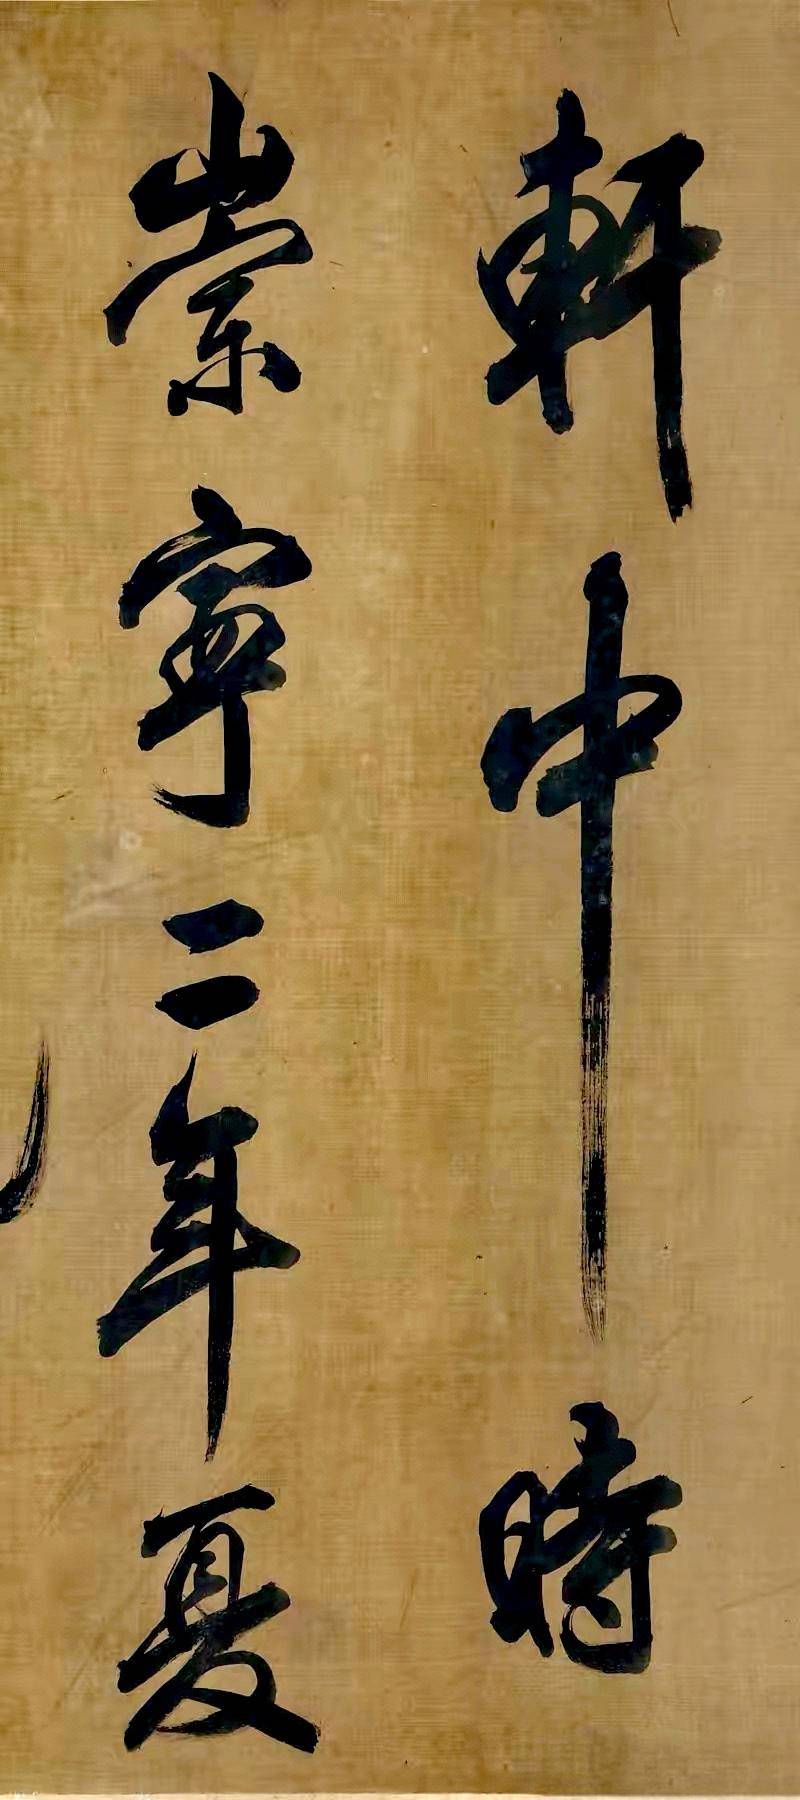 軒中時
崇寧二年夏